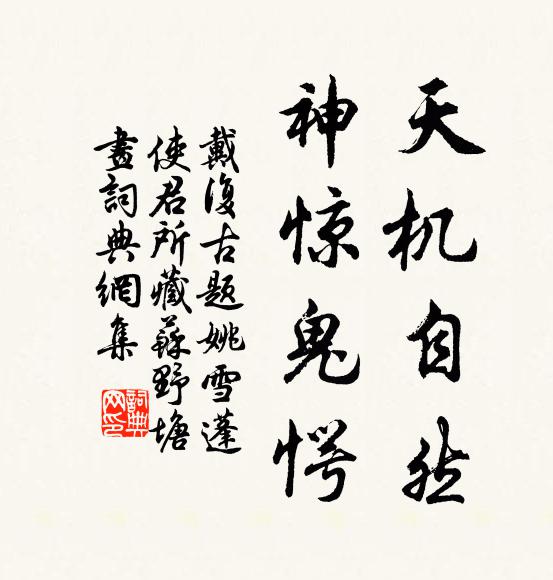 天机自然
神惊鬼愕
戴復古题姚雪蓬
使君所藏蘇野塘
畫詞典網集
詞典
网印